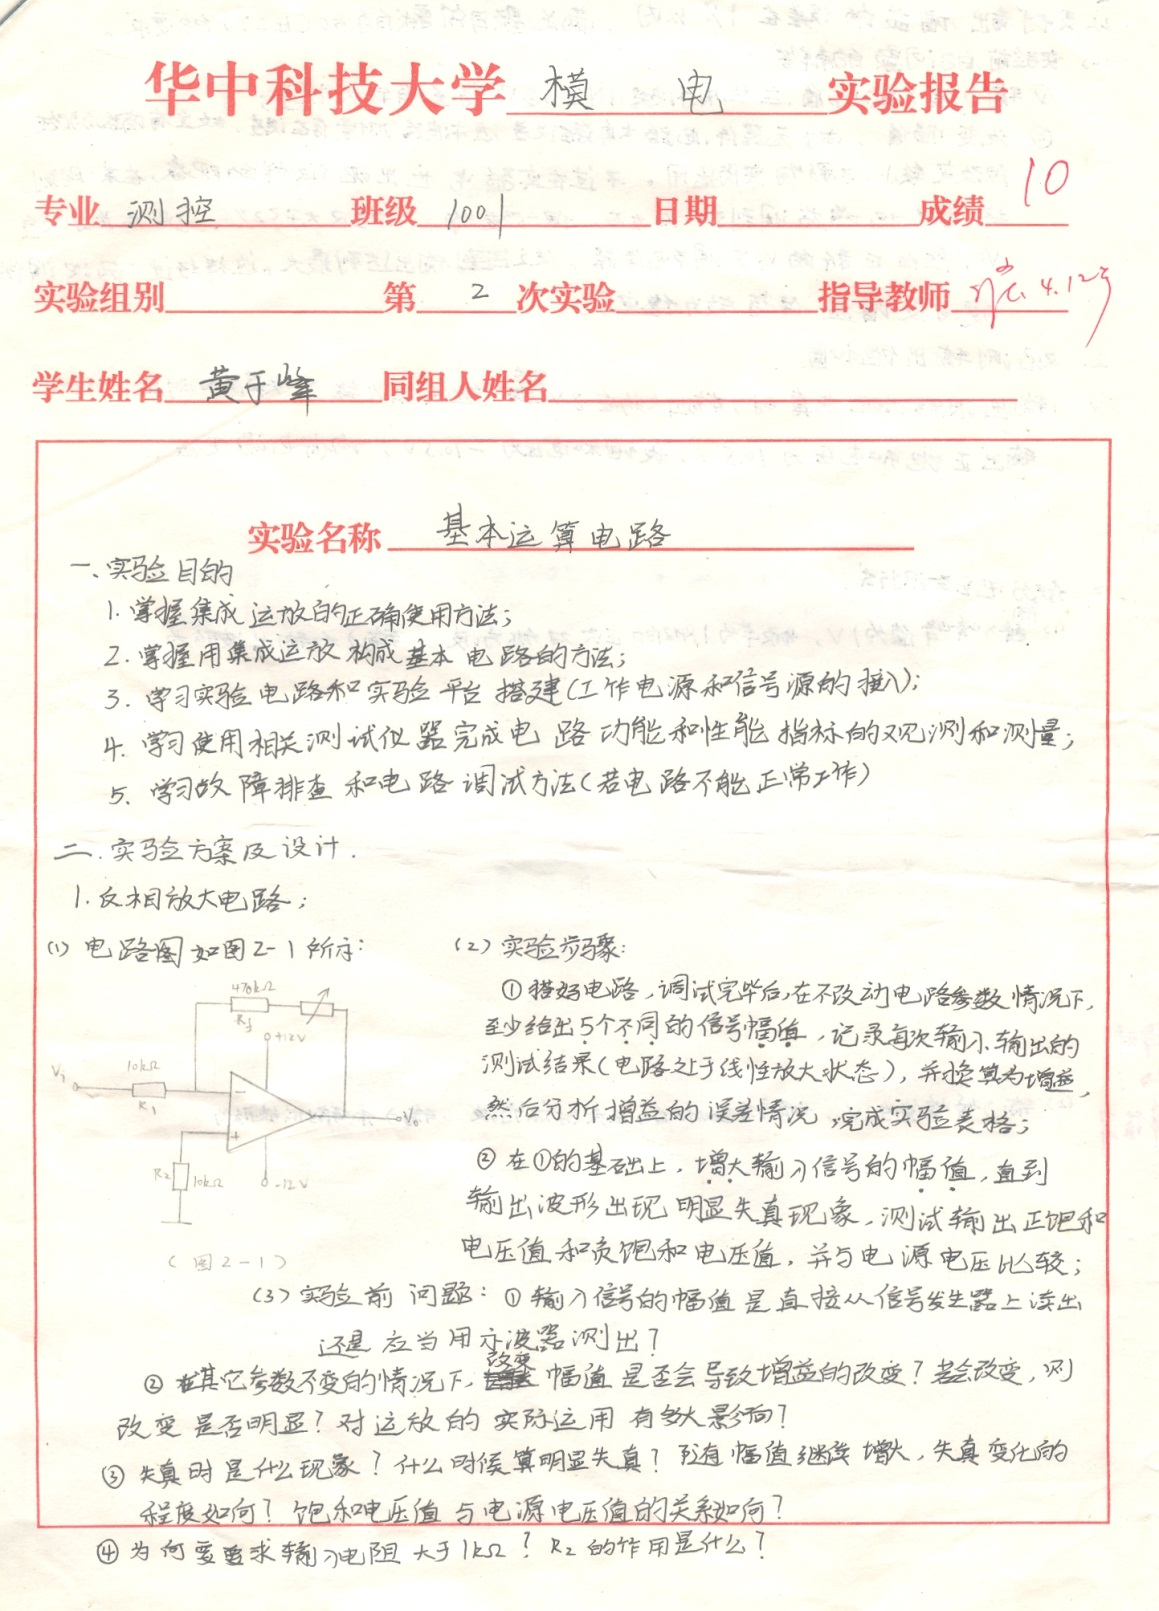 华中科技大学 模 电 实验报告
专业 测控 班级 1001 日期 成绩 10
实验组别 第 2 次实验 指导教师 4.12
学生姓名 黄于峰 同组人姓名
实验名称 基本运算电路
一、实验目的
1. 掌握集成运放的正确使用方法;
2. 掌握用集成运放构成基本电路的方法;
3. 学习实验电路和实验平台搭建(工作电源和信号源的接入);
4. 学习使用相关测试仪器完成电路功能和性能指标的观测和测量;
5. 学习故障排查和电路调试方法(若电路不能正常工作)
二. 实验方案及设计.
1. 反相放大电路;
(1) 电路图如图2-1所示:
470kΩ
Rf
+12V
10kΩ
Vi
R1
-
+
Vo
R2
10kΩ
-12V
(图2-1)
(2) 实验步骤:
① 搭好电路,调试完毕后,在不改动电路参数情况下,
至少给出5个不同的信号幅值,记录每次输入、输出的
测试结果(电路处于线性放大状态),并换算为增益,
然后分析增益的误差情况,完成实验表格;
② 在①的基础上,增大输入信号的幅值,直到
输出波形出现明显失真现象,测试输出正饱和
电压值和负饱和电压值,并与电源电压比较;
(3) 实验前问题: ① 输入信号的幅值是直接从信号发生器上读出
还是应当用示波器测出?
② 在其它参数不变的情况下,改变幅值是否会导致增益的改变?若会改变,则
改变是否明显?对运放的实际运用有多大影响?
③ 失真时是什么现象?什么时候算明显失真?随着幅值继续增大,失真变化的
程度如何?饱和电压值与电源电压值的关系如何?
④ 为何要要求输入电阻大于1kΩ? R2的作用是什么?